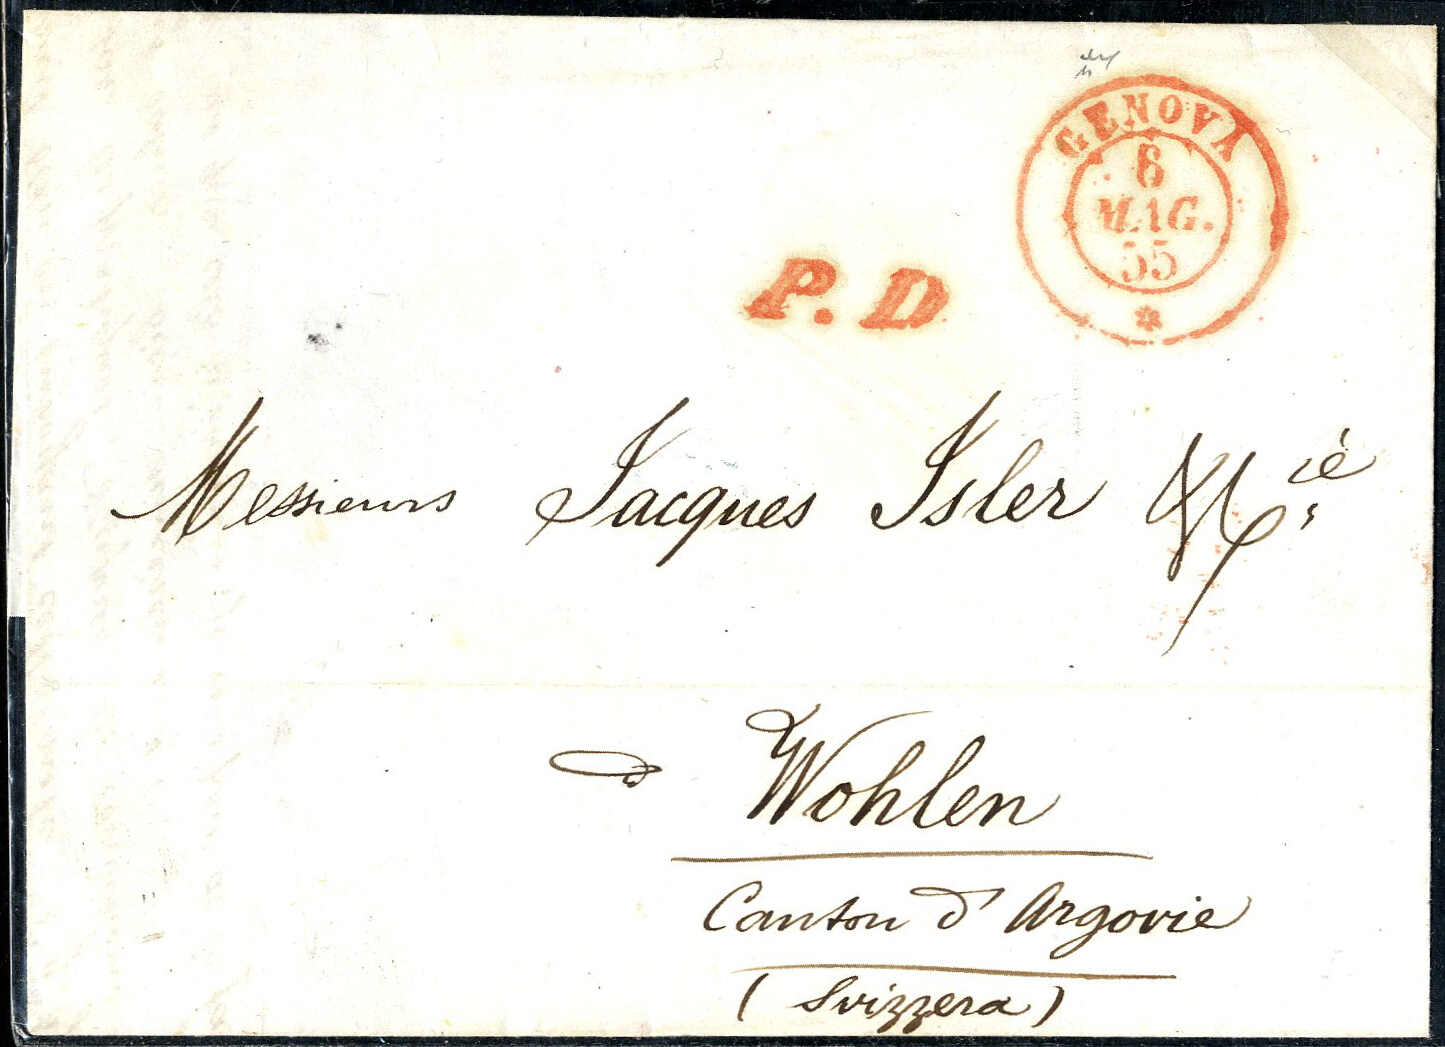 GENOVA
6
MAG.
55
P. D.
Messieurs Jacques Isler & Cie
à Wohlen
Canton d'Argovie
(Svizzera)